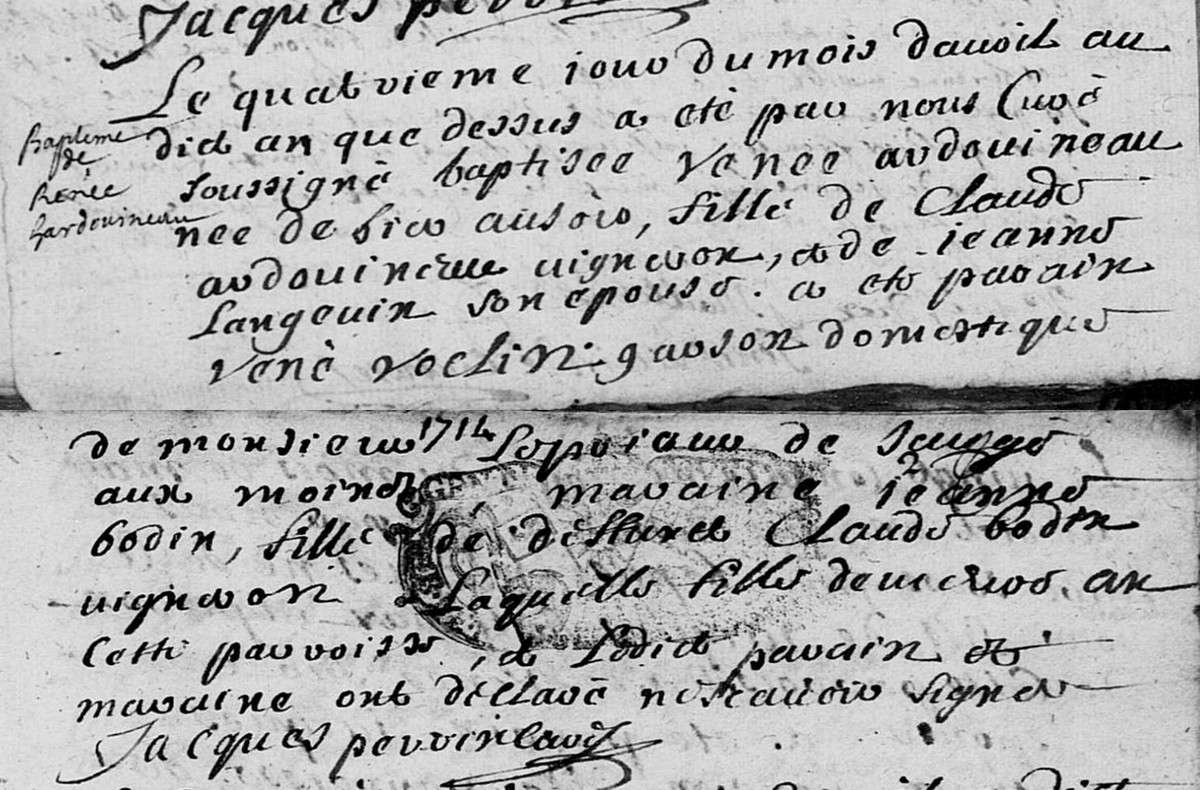 Jacques perroin
Le quatrieme jour du mois davoil au
bapteme
de
Renée
hardouineau
dict an que dessus a eté par nous Curé
soussigné baptisee renee ardouineau
née de hier ausoir, fille de Claude
ardouineau uigneron, et de jeanne
Langeuin son epouse. a eté parain
rené roclin garson domestique
1714
2
de monsieur Lepriaur de
aux moines, maraine jeanne
bodin, fille de deffunct Claude bodin
uigneron Laquelle fille demeure an
Cette parroisse, et Ledict parain et
maraine ont déclaré nescauoir signer
Jacques perroin curé